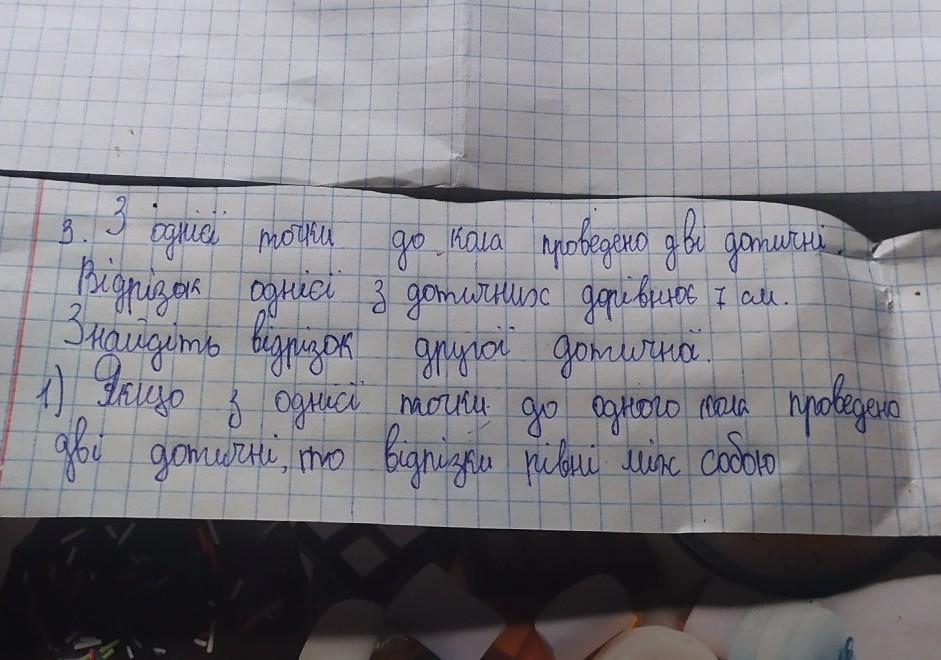 3. З однієї точки до кола проведено дві дотичні.
Відрізок однієї з дотичних дорівнює 7 см.
Знайдіть відрізок другої дотичної.
1) Якщо з однієї точки до одного кола проведено
дві дотичні, то відрізки рівні між собою